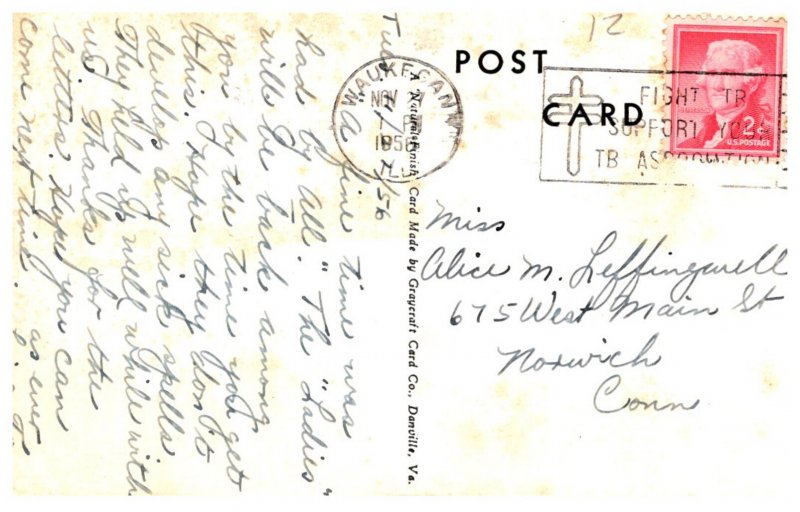 12
POST
CARD
WAUKEGAN
NOV
1956
ILL
FIGHT TB
SUPPORT YOUR
TB ASSOCIATION
2¢
U.S. POSTAGE
A Natural Finish Card Made by Graycraft Card Co., Danville, Va.
Miss
Alice M. Leffingwell
675 West Main St
Norwich
Conn
Tues
"A fine time was
had by All." The "Ladies"
will be back among
you by the time you get
this. Hope they don't
develop any sick spells.
They held up well while with
us. Thanks for the
letters. Hope you can
come next time. as ever
T.